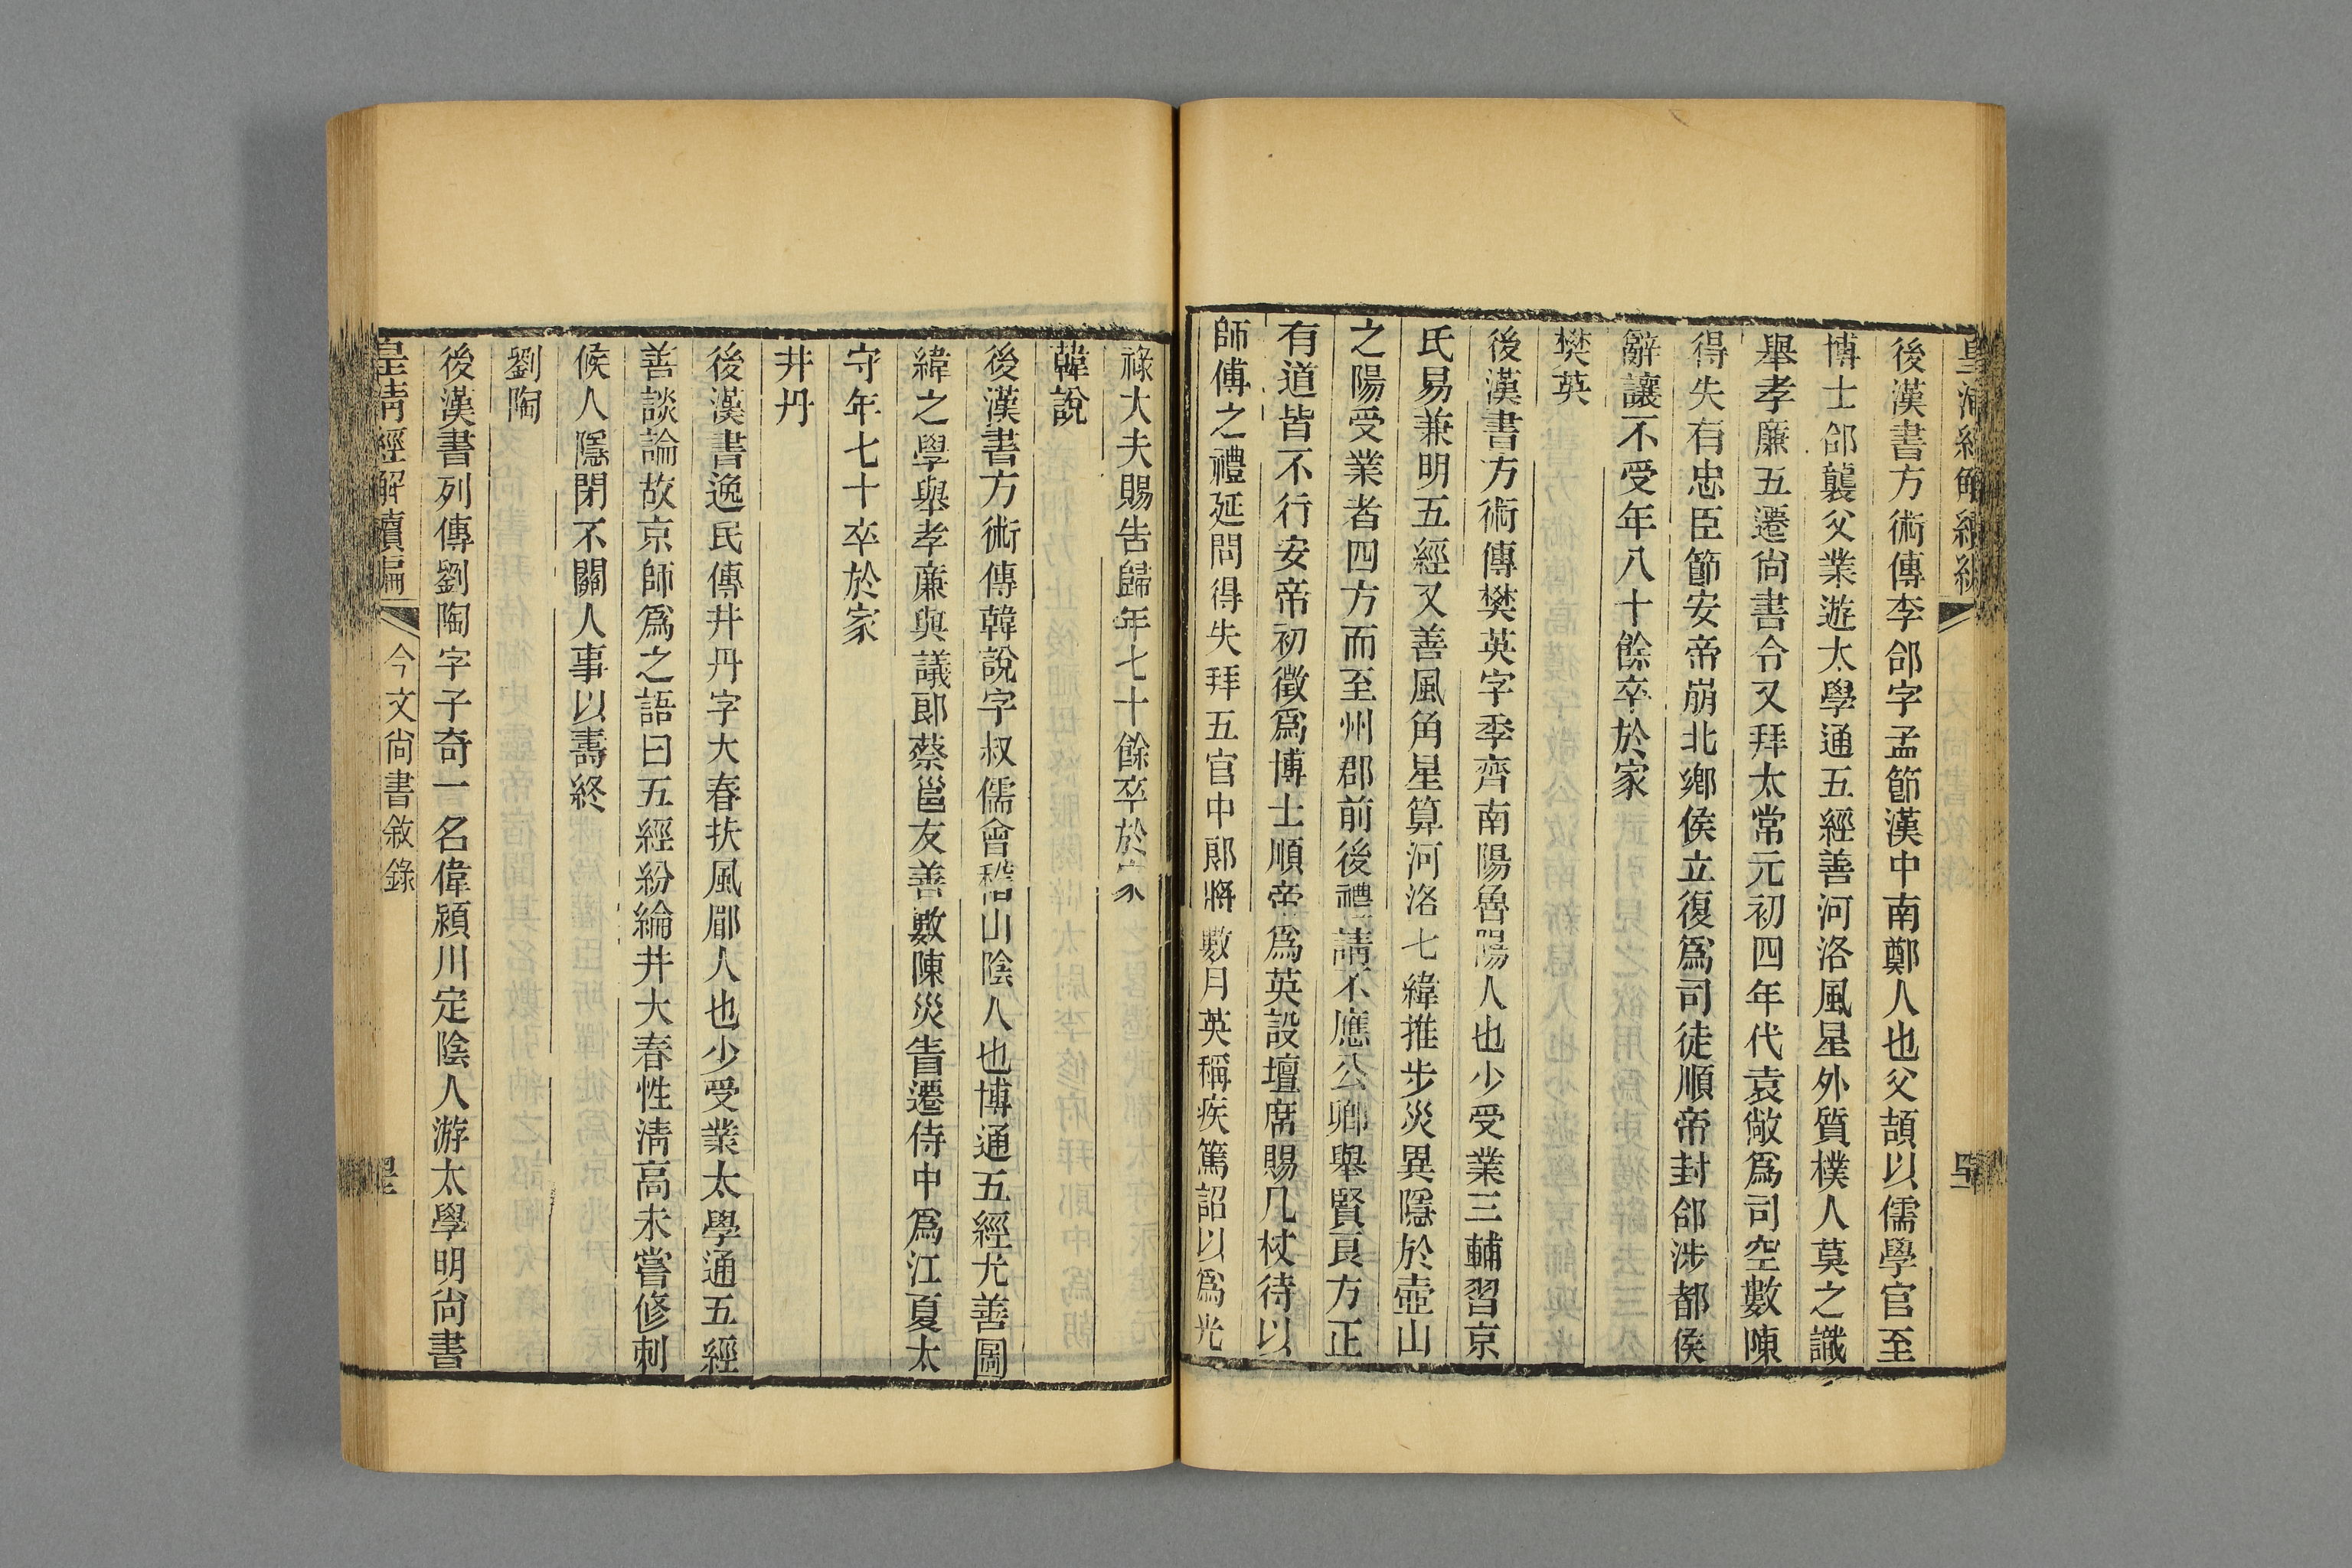 後漢書方術傳李郃字孟節漢中南鄭人也父頡以儒學官至
博士郃襲父業遊太學通五經善河洛風星外質樸人莫之識
舉孝廉五遷尚書令又拜太常元初四年代袁敞爲司空數陳
得失有忠臣節安帝崩北鄉侯立復爲司徒順帝封郃涉都侯
辭讓不受年八十餘卒於家
樊英
後漢書方術傳樊英字季齊南陽魯陽人也少受業三輔習京
氏易兼明五經又善風角星算河洛七緯推步災異隱於壺山
之陽受業者四方而至州郡前後禮請不應公卿舉賢良方正
有道皆不行安帝初徵爲博士順帝爲英設壇席賜几杖待以
師傅之禮延問得失拜五官中郎將數月英稱疾篤詔以爲光
祿大夫賜告歸年七十餘卒於家
韓說
後漢書方術傳韓說字叔儒會稽山陰人也博通五經尤善圖
緯之學舉孝廉與議郎蔡邕友善數陳災眚遷侍中爲江夏太
守年七十卒於家
井丹
後漢書逸民傳井丹字大春扶風郿人也少受業太學通五經
善談論故京師爲之語曰五經紛綸井大春性淸高未嘗修刺
候人隱閉不關人事以壽終
劉陶
後漢書列傳劉陶字子奇一名偉潁川定陰人游太學明尚書
皇淸經解續編 今文尚書敘錄